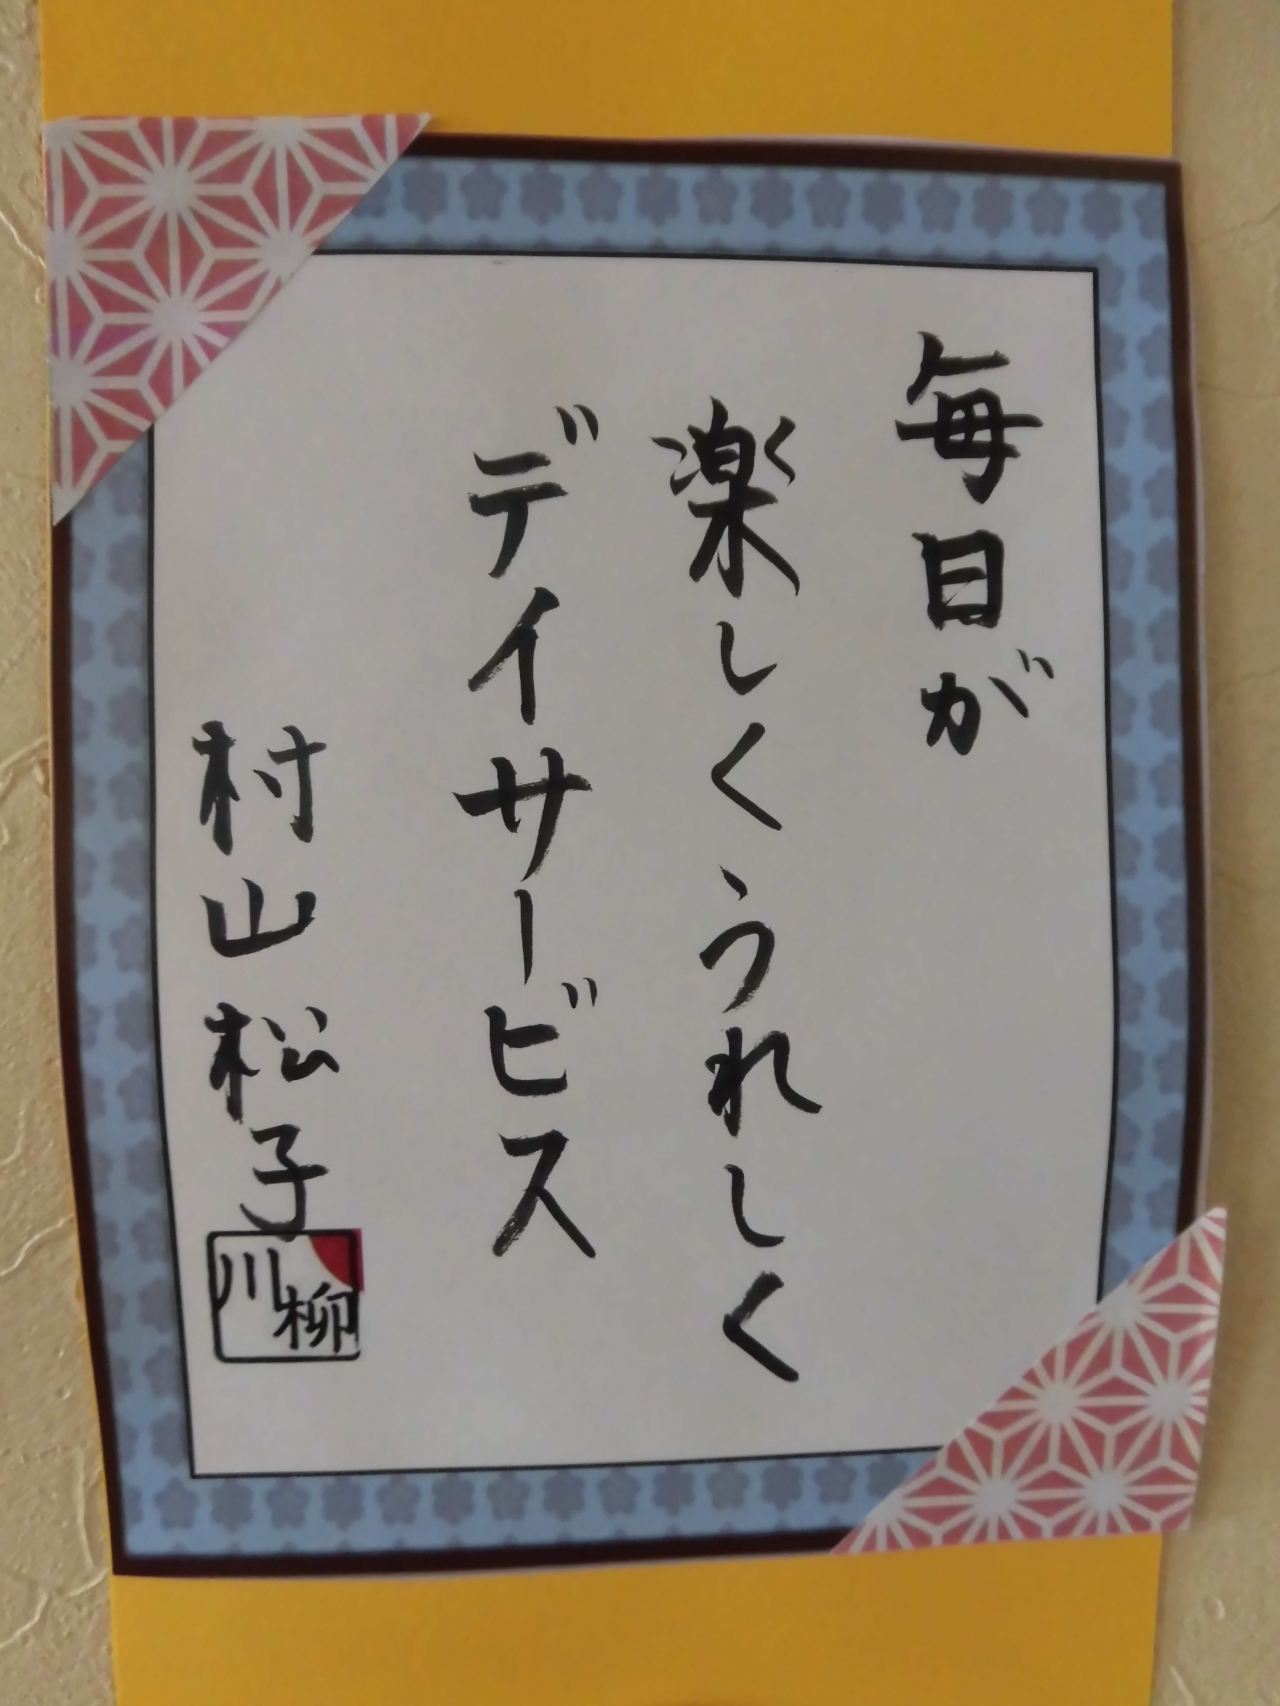 毎日が
楽しくうれしく
デイサービス
村山松子
川柳